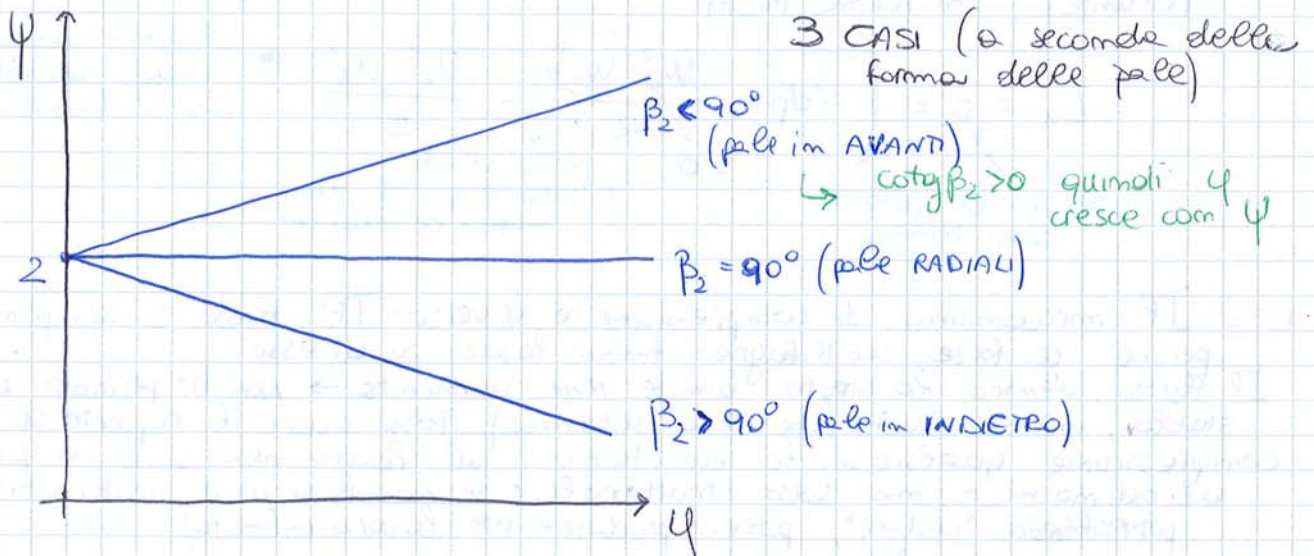 ψ
3 CASI (a seconda della
forma delle pale)
β₂ < 90°
(pale in AVANTI)
↳ cotgβ₂ > 0 quindi φ
cresce con ψ
2
β₂ = 90° (pale RADIALI)
β₂ > 90° (pale in INDIETRO)
φ